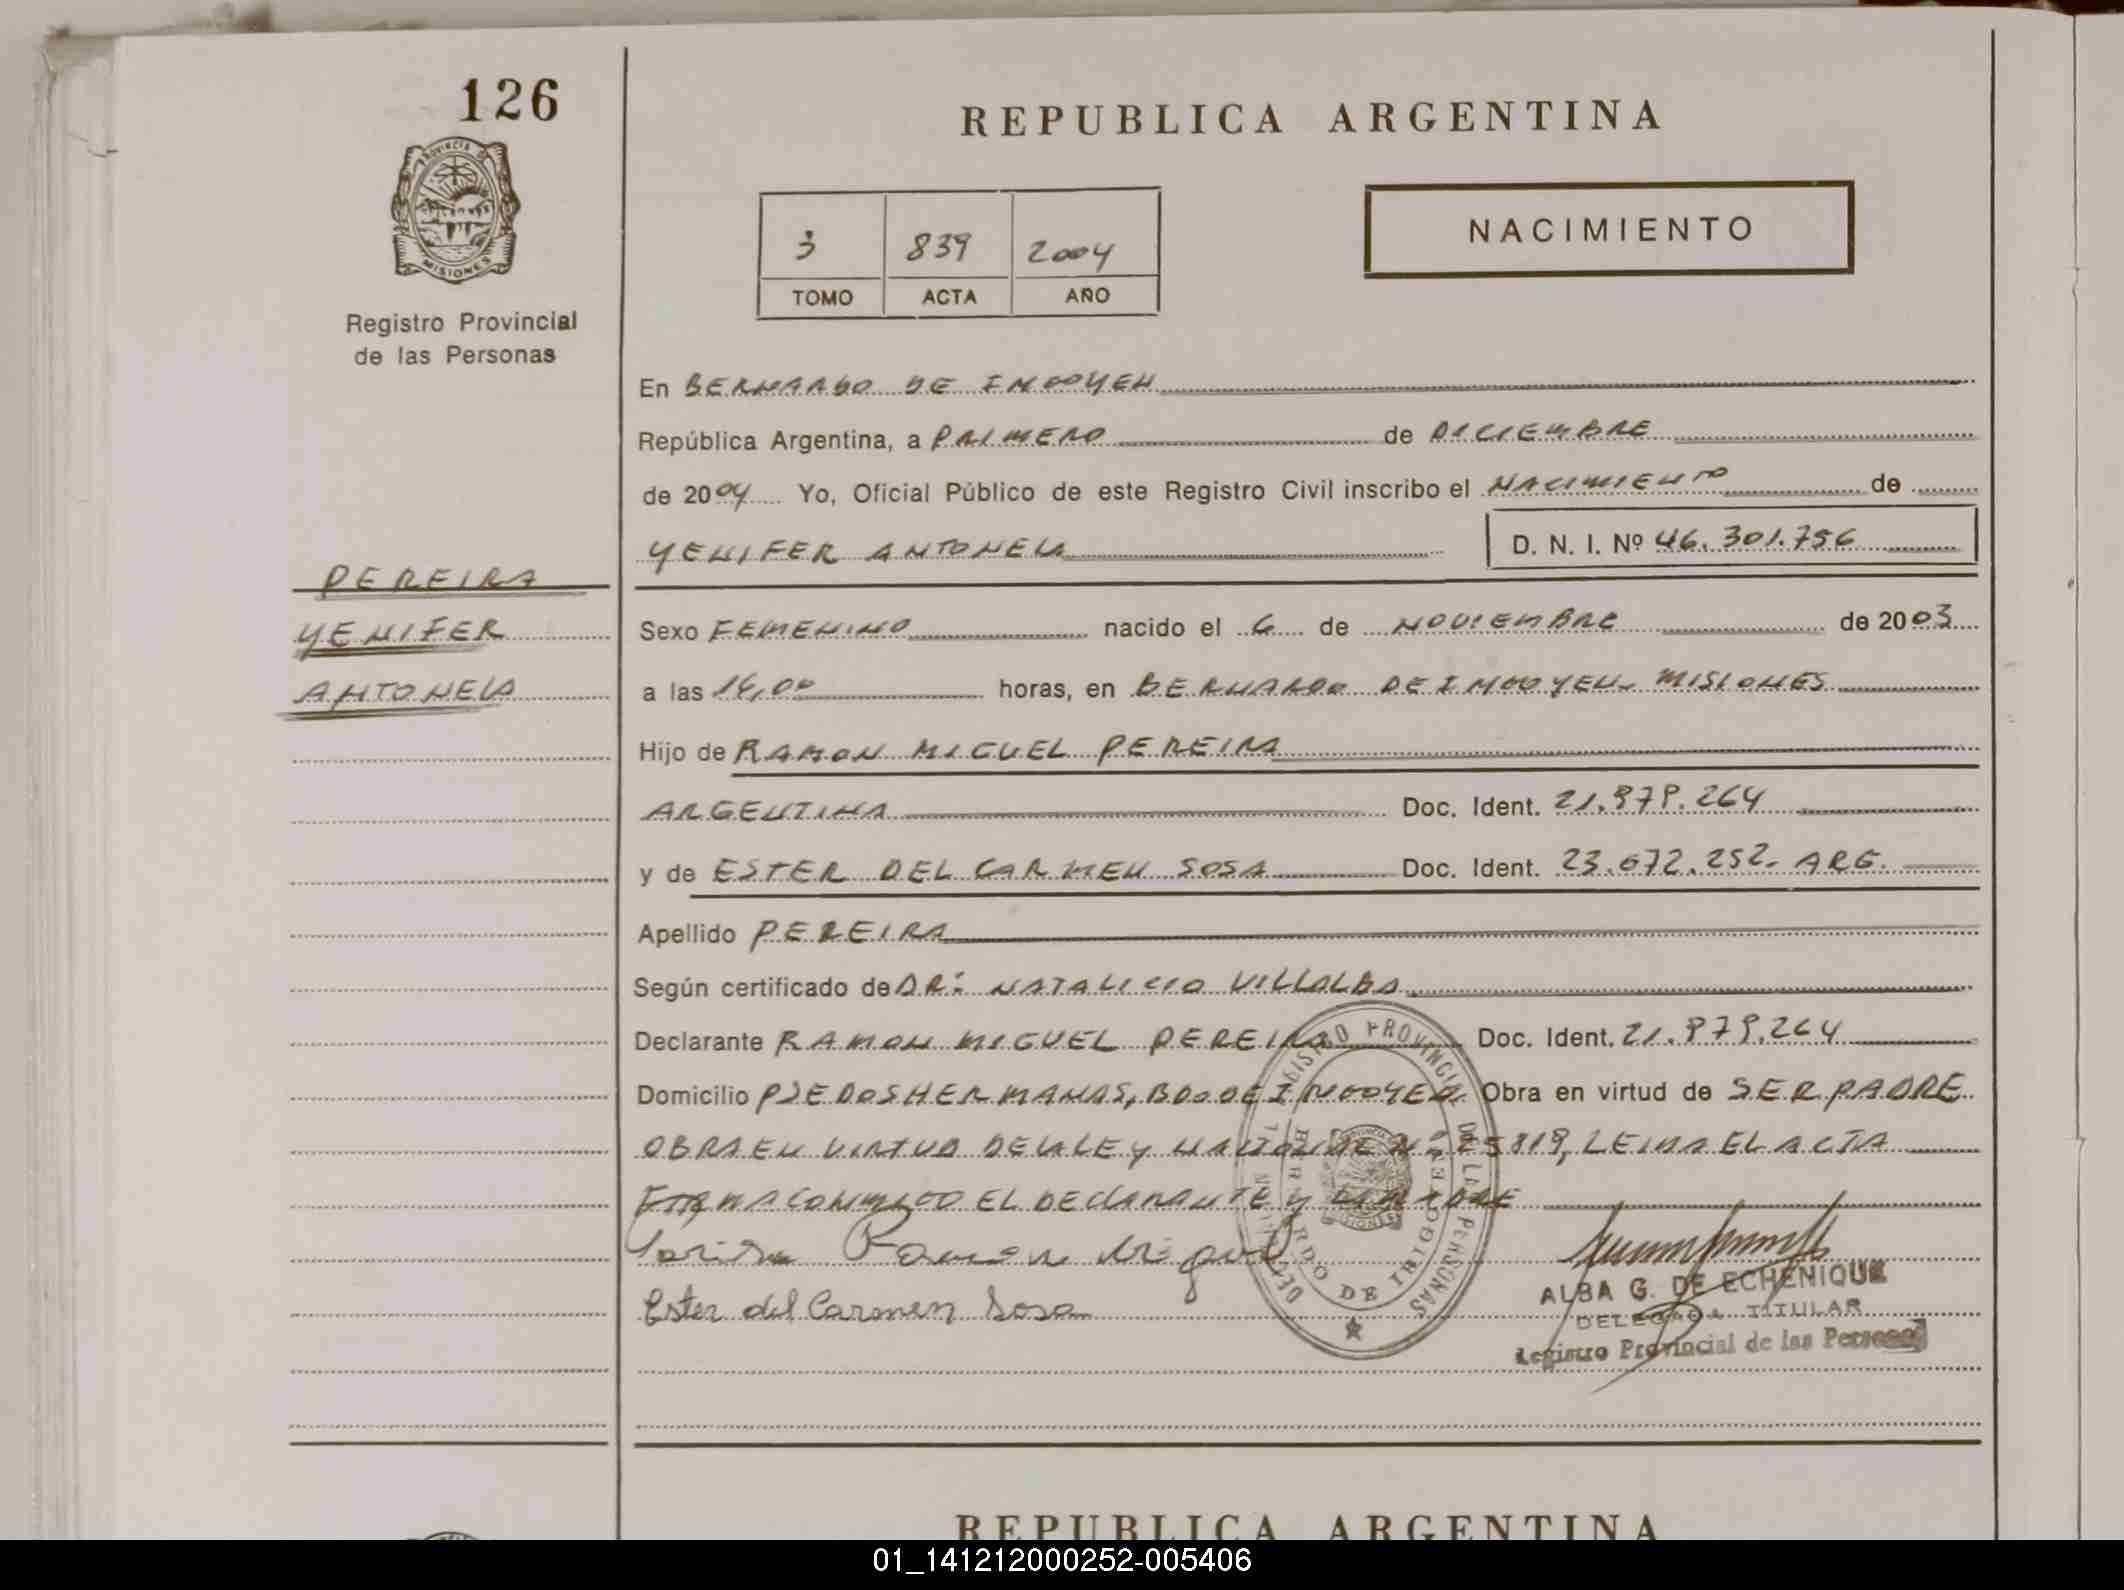 126
PROVINCIA DE
MISIONES
Registro Provincial
de las Personas
PEREIRA
YENIFER
ANTONELA
REPUBLICA ARGENTINA
NACIMIENTO
3 839 2004
TOMO ACTA AÑO
En BERNARDO DE IRIGOYEN
República Argentina, a PRIMERO de DICIEMBRE
de 2004 Yo, Oficial Público de este Registro Civil inscribo el NACIMIENTO de
YENIFER ANTONELA D. N. I. Nº 46.301.756
Sexo FEMENINO nacido el 6 de NOVIEMBRE de 2003
a las 16,00 horas, en BERNARDO DE IRIGOYEN. MISIONES
Hijo de RAMON MIGUEL PEREIRA
ARGENTINA Doc. Ident. 21.979.264
y de ESTER DEL CARMEN SOSA Doc. Ident. 23.672.252. ARG.
Apellido PEREIRA
Según certificado de DR: NATALICIO VILLALBA
Declarante RAMON MIGUEL PEREIRA Doc. Ident. 21.979.264
Domicilio PJE DOS HERMANAS, BDO DE IRIGOYEN Obra en virtud de SER PADRE
OBRA EN VIRTUD DE LA LEY NACIONAL Nº 25819, LEIDA EL ACTA
FIRMA CONMIGO EL DECLARANTE Y LA MADRE
Ramon Miguel
Ester del Carmen Sosa
REGISTRO PROVINCIAL DE LAS PERSONAS
BERNARDO DE IRIGOYEN
ALBA G. DE ECHENIQUE
DELEGADA TITULAR
Registro Provincial de las Personas
REPUBLICA ARGENTINA
01_141212000252-005406